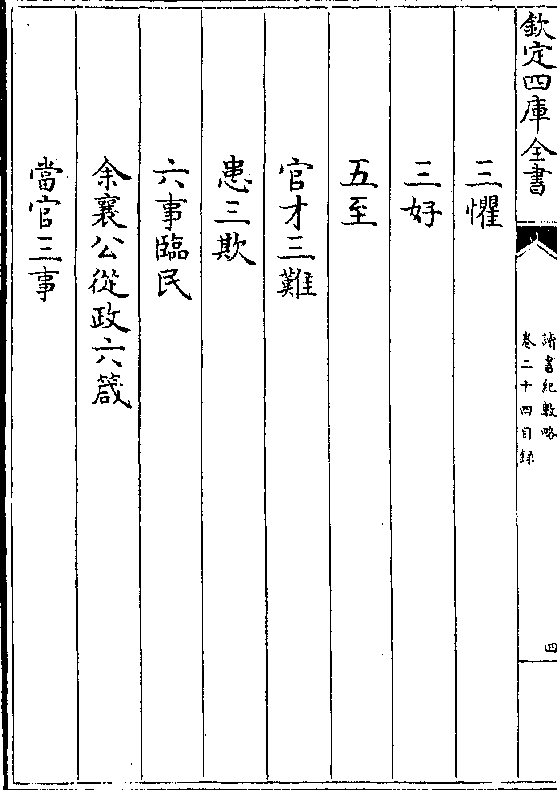 欽定四庫全書
讀書紀數略
卷二十四目録
四
三懼
三好
五至
官才三難
患三欺
六事臨民
余襄公從政六箴
當官三事